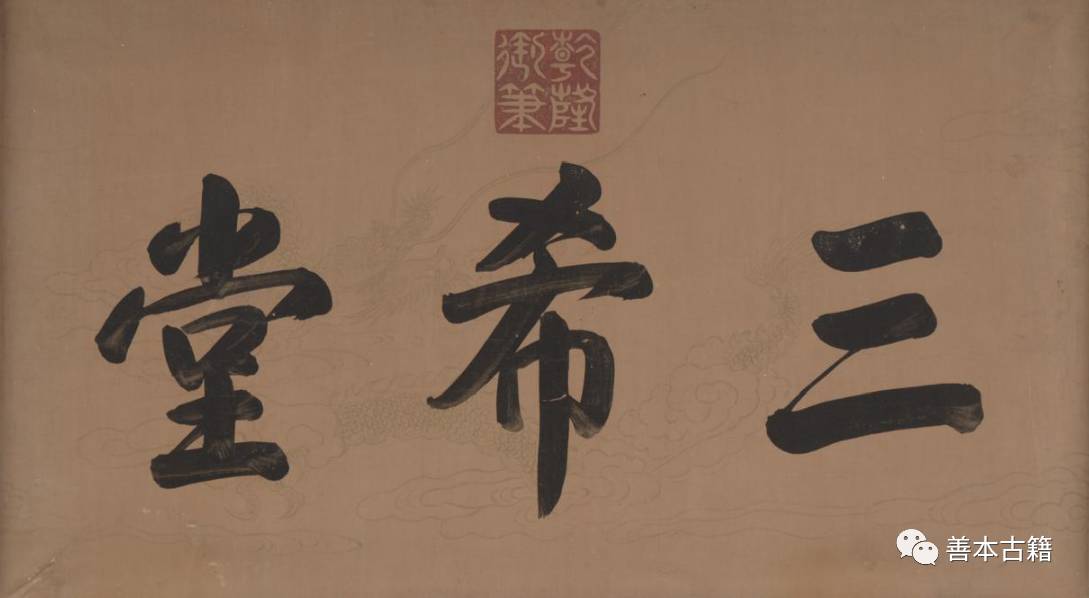 乾隆
御筆
三希堂
善本古籍